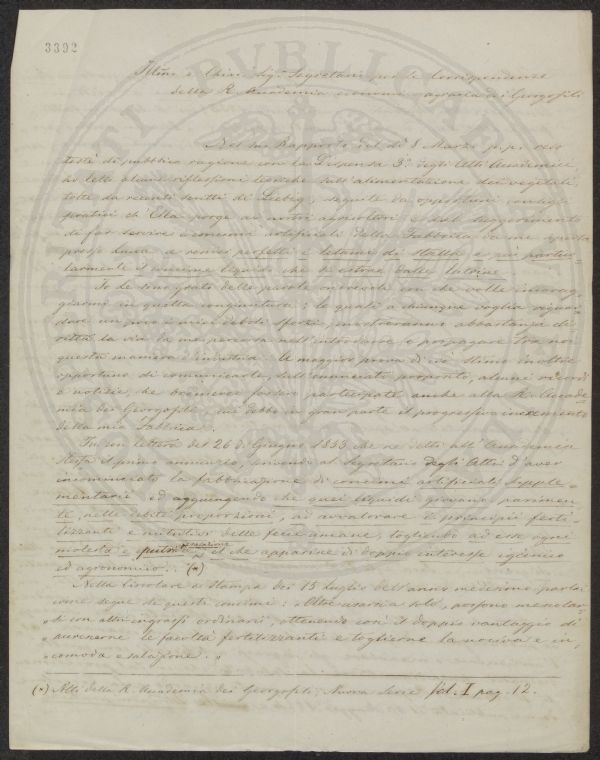 3392
Illmo e Chiar. Sig. Segretario per le Corrispondenze
della R. Accademia economo-agraria dei Georgofili
Nel suo Rapporto del dì 8 Marzo p. p. reso
testè di pubblica ragione con la Dispensa 3ª degli Atti Accademici
ho letto alcune riflessioni teoriche sull'alimentazione dei vegetali,
tolte da recenti scritti di Liebig, seguite da opportuni consigli
pratici ch'Ella porge ai nostri agricoltori e dal suggerimento
di far servire i concimi artificiali della Fabbrica da me
presso Lucca a render perfetti i letami di stalla e più partico-
larmente il concime liquido che si estrae dalle latrine.
Io Le sono grato delle parole onorevoli con che volle incorag-
giarmi in questa congiuntura; le quali a chiunque voglia riguar-
dare un poco i miei deboli sforzi, mostreranno abbastanza di
qual la via da me percorsa nell'introdurre e propagare tra noi
questa maniera d'industria. A maggior prova di ciò stimo inoltre
opportuno di comunicarle, sull'enunciato proposito, alcuni ricordi
e notizie, che bramerei fossero partecipate anche alla R. Accade-
mia dei Georgofili, cui debbo in gran parte il progressivo incremento
della mia Fabbrica.
Fu con lettera del 26 di Giugno 1853 che ne detti all'Accademia
stessa il primo annunzio, scrivendo al Segretario degli Atti d'aver
incominciato la fabbricazione di concimi artificiali supple-
mentarii ed aggiungendo che quei liquidi giovano parimen-
te, nelle debite proporzioni, ad avvalorare di principii ferti-
lizzanti e nutritivi delle feci umane, togliendo ad esse ogni
molesta e putrida esalazione; il che apparisce di doppio interesse igienico
ed agronomico. (*)
Nella Circolare a stampa dei 15 Luglio dell'anno medesimo parlai
come segue di questi concimi: „ Oltre usarsi a solo, possono mescolar-
„ si con altri ingrassi ordinarii, ottenendo così il doppio vantaggio di
„ accrescerne le facoltà fertilizzanti e toglierne la nociva e in-
„ comoda esalazione. „
(*) Atti della R. Accademia dei Georgofili, Nuova Serie Vol. I pag. 12.